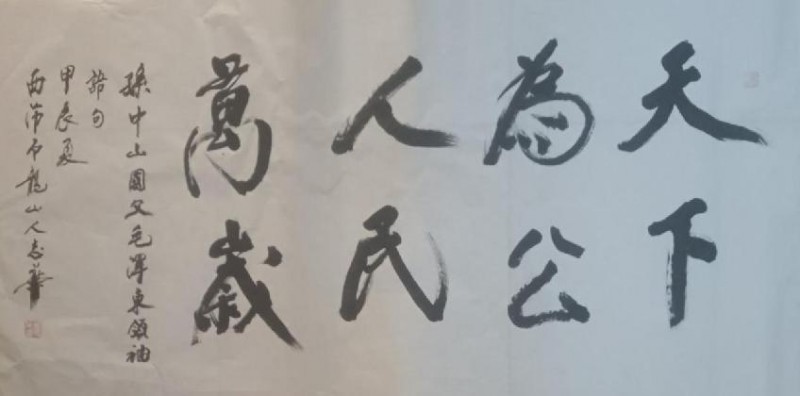 天下
為公
人民
萬歲
孫中山國父毛澤東領袖
語句
甲辰夏
山人志華